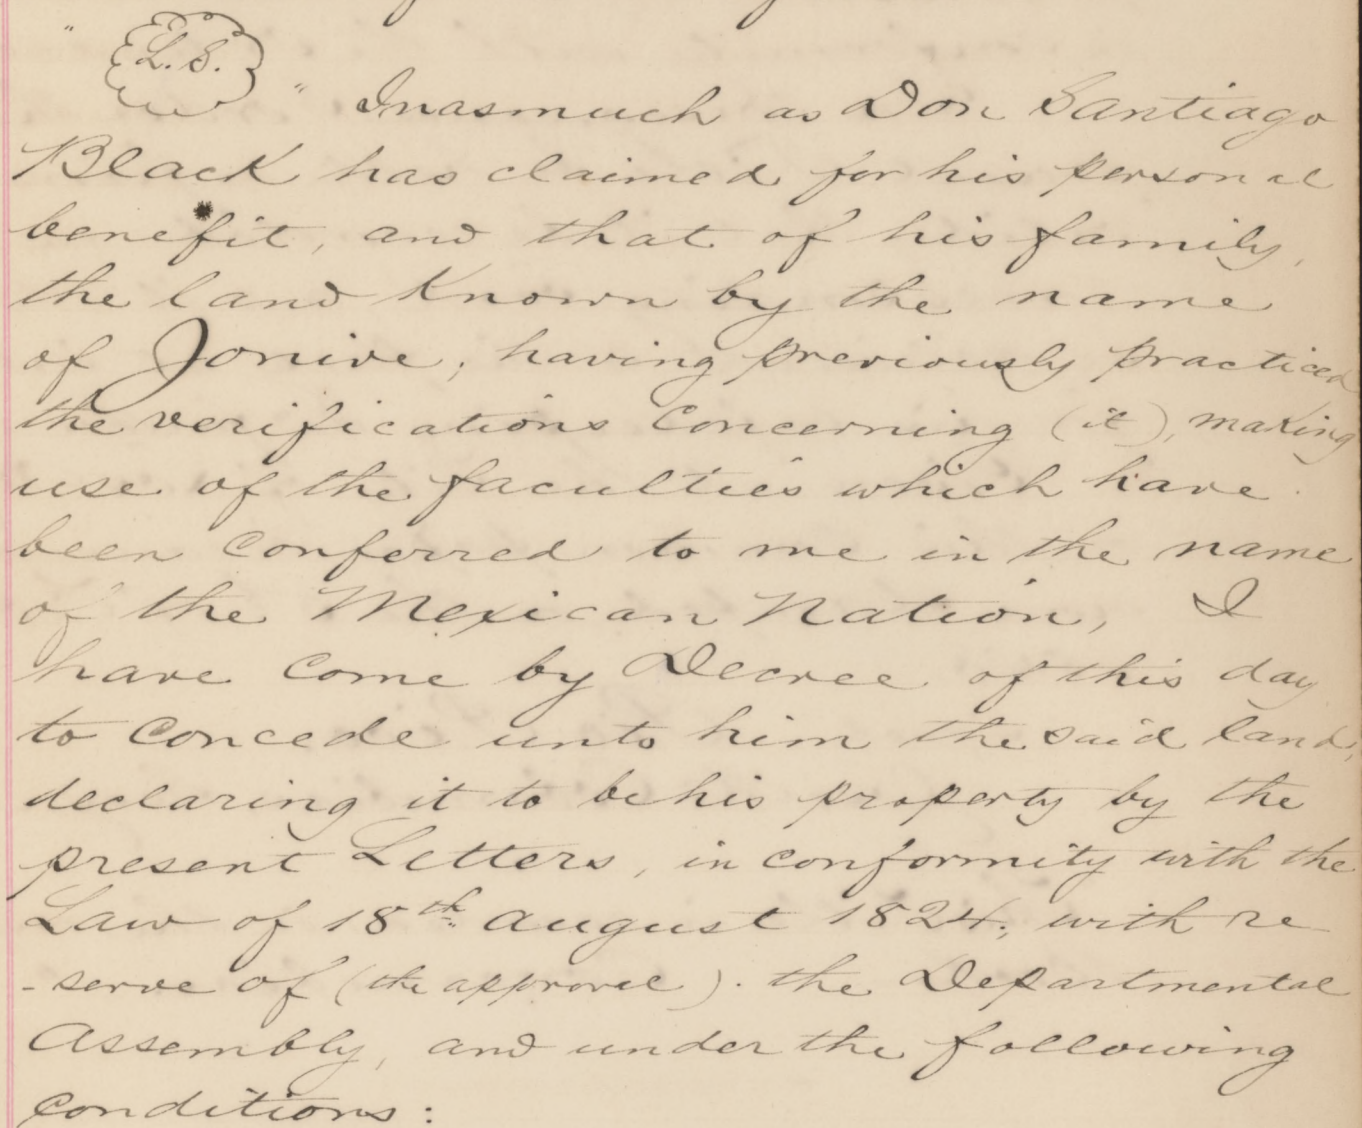 " L.S. " Inasmuch as Don Santiago
Black has claimed for his personal
benefit, and that of his family,
the land known by the name
of Jonive, having previously practiced
the verifications concerning (it), making
use of the faculties which have
been conferred to me in the name
of the Mexican Nation, I
have come by Decree of this day
to concede unto him the said land,
declaring it to be his property by the
present Letters, in conformity with the
Law of 18th August 1824, with re
-serve of (the approval). the Departmental
Assembly, and under the following
conditions: